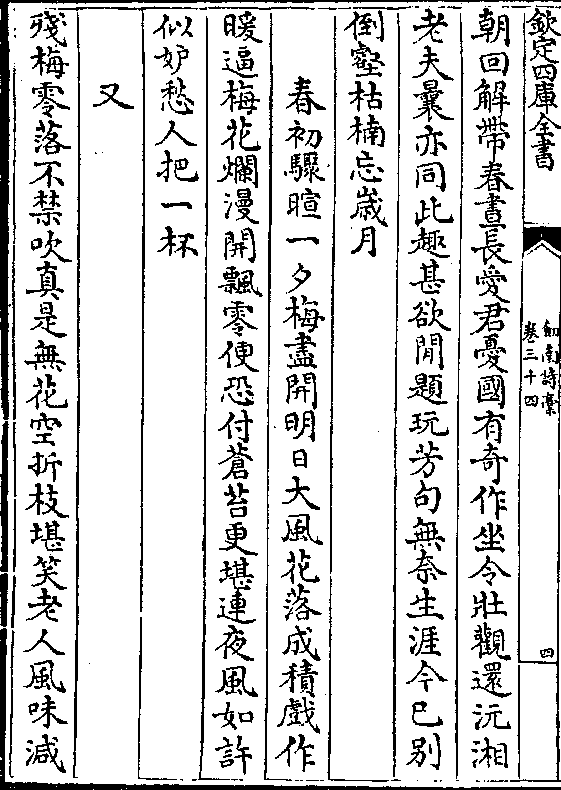 欽定四庫全書
劎南詩藁
卷三十四
四
朝回解帶春晝長愛君憂國有奇作坐令壯觀還沅湘
老夫曩亦同此趣甚欲閒題玩芳句無奈生涯今已别
倒壑枯楠忘歳月
春初驟暄一夕梅盡開明日大風花落成積戲作
暖逼梅花爛漫開飄零便恐付蒼苔更堪連夜風如許
似妒愁人把一杯
又
殘梅零落不禁吹真是無花空折枝堪笑老人風味減